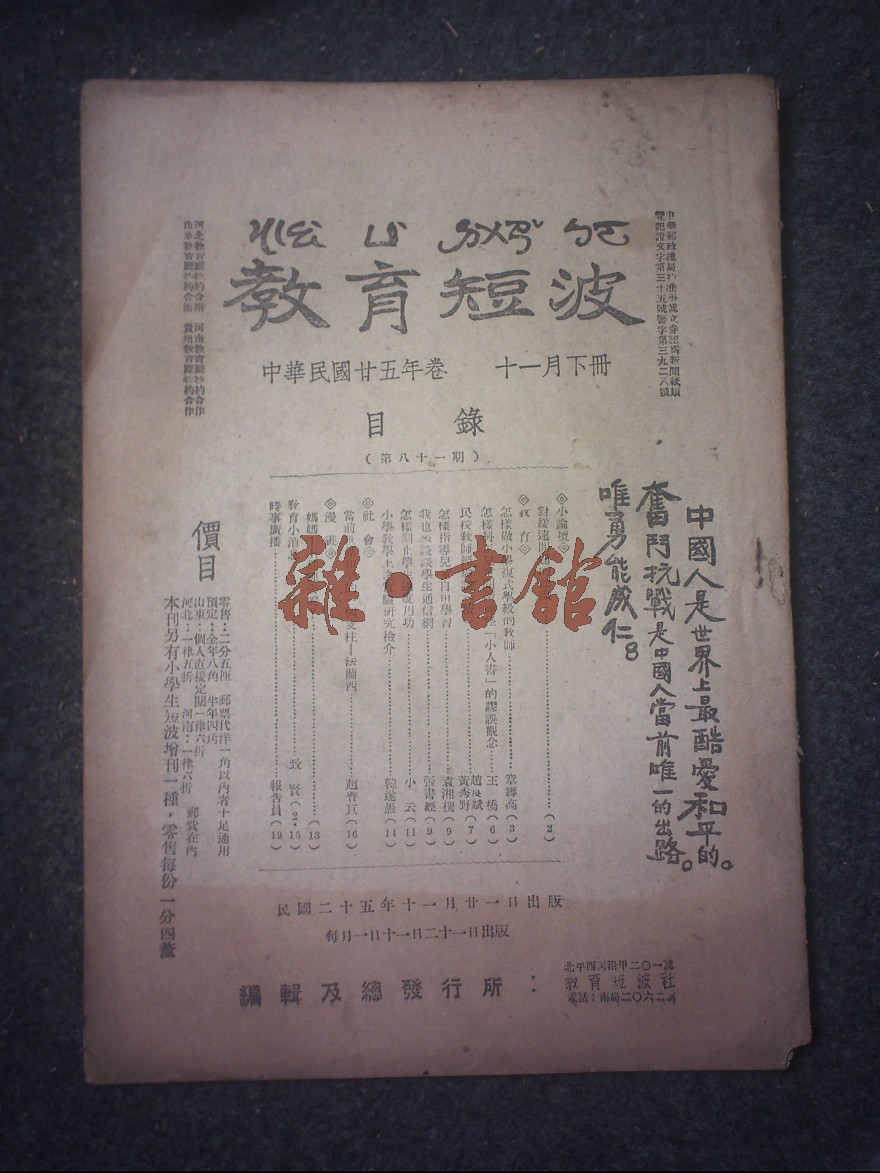 教育短波
中華民國廿五年卷　十一月下冊
目錄
(第八十一期)
中國人是世界上最酷愛和平的。
奮鬥抗戰是中國人當前唯一的出路。
唯勇能成仁。
◎小論壇◎
對綏遠 (2)
◎教育◎
怎樣做小學複式學級的教師 章壽高(3)
怎樣 「小人書」的謬誤觀念 王橋(6)
民校教師 黃秀野(7)
怎樣指導兒 自由學習 袁湘槐(9)
我也來談談學生通信網 張書紳(9)
怎樣制止學生 用功 小雲(11)
小學教學上 驗研究檢介 韓遂愚(14)
◎社會◎
當前 支柱—法蘭西 趙青臣(16)
◎漫談◎
媽媽 (13)
教育小消息 致賢(2·15)
時事廣播 報告員(19)
價目
零售：二分五厘　郵票代洋一角以內者十足通用
預定：全年八角　半年四角
山東：個人直接定閱一律六折
河北：一律五折　河南：一律六折　郵費在內
本刊另有小學生短波增刊一種，零售每份一分四釐
河北教育廳特約合作　河南教育廳特約合作
山東教育廳特約合作　貴州教育廳特約合作
民國二十五年十一月廿一日出版
每月一日十一日二十一日出版
編輯及總發行所：
教育短波社
電話：南局二〇六二
雜·書館